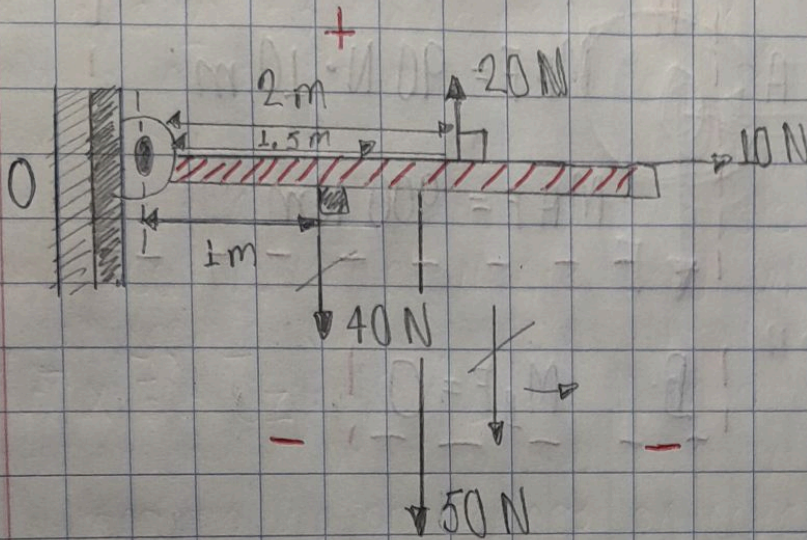 +
2 m
20 N
1.5 m
10 N
O
1 m
40 N
50 N